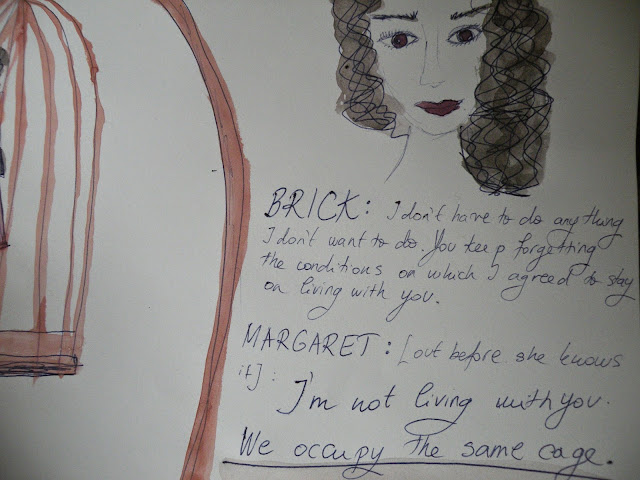 BRICK: I don't have to do anything
I don't want to do. You keep forgetting
the conditions on which I agreed to stay
on living with you.
MARGARET: [out before she knows
it]:
I'm not living with you.
We occupy the same cage.